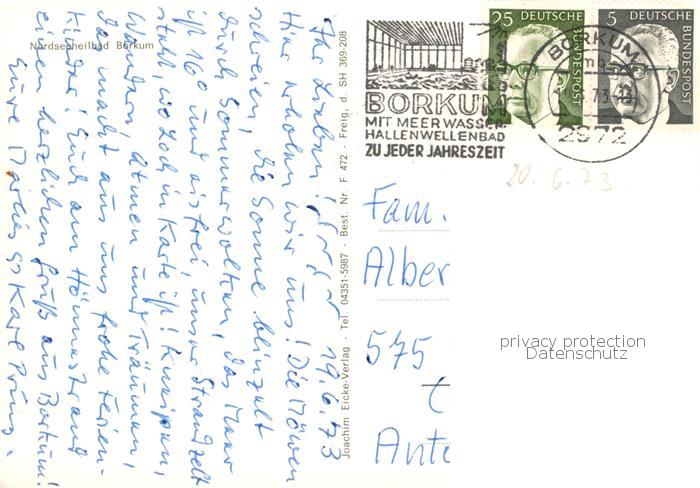 Nordseeheilbad Borkum
Ihr Lieben! 19.6.73
Hier erholen wir uns! Die Möwen
schreien, die Sonne blinzelt
durch Sommerwolken, das Meer
ist 16° und eisfrei, unser Strandzelt
steht wo Loch in Karte ist! Kneippen,
Wandern, Atmen und Träumen,
das macht aus uns frohe Ferien-
kinder! Euch am Strand
einen herzlichen Gruß aus Borkum!
Eure
Joachim Eicke-Verlag · Tel. 04351-5987 · Best. Nr. F 472 · Freig. d. SH 369-208
BORKUM
MIT MEERWASSER-
HALLENWELLENBAD
ZU JEDER JAHRESZEIT
25 DEUTSCHE BUNDESPOST
5 DEUTSCHE BUNDESPOST
BORKUM
73
2972
20.6.73
Fam.
Alber
575
Ante
privacy protection
Datenschutz